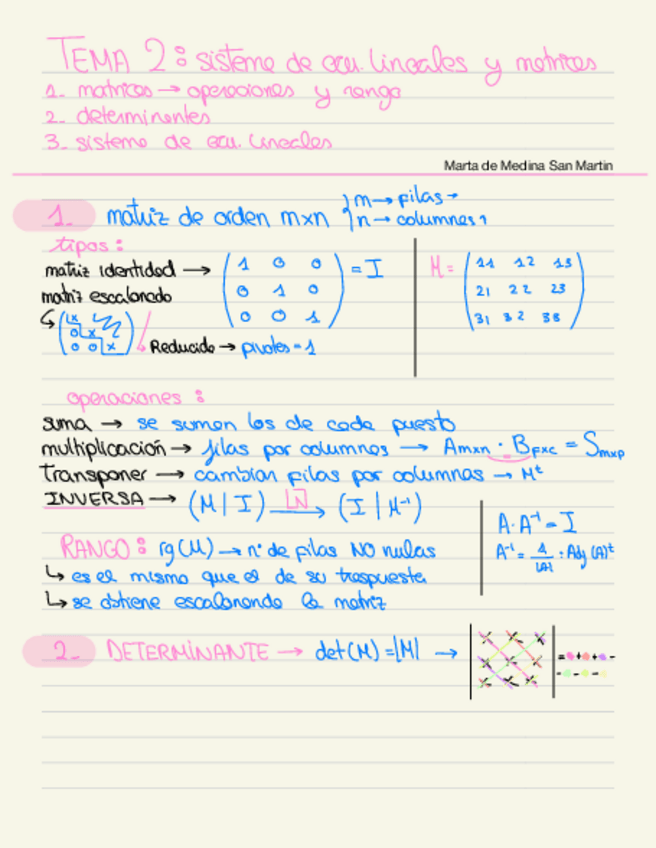 TEMA 2: sistema de ecu. lineales y matrices
1_ matrices → operaciones y rango
2_ determinantes
3_ sistema de ecu. lineales
Marta de Medina San Martin
1_ matriz de orden mxn { m → filas →
n → columnas ↑
tipos:
matriz identidad → ( 1 0 0
0 1 0
0 0 1 ) = I
M = ( 11 12 13
21 22 23
31 32 33 )
matriz escalonada
↳ ( x
0 x
0 0 x )
↳ Reducida → pivotes = 1
operaciones:
suma → se suman los de cada puesto
multiplicación → filas por columnas → Amxn · Bpxc = Smxp
transponer → cambiar filas por columnas → Mᵗ
INVERSA → (M | I) → (I | M⁻¹)
A · A⁻¹ = I
A⁻¹ = 1/|A| · Adj (A)ᵗ
RANGO: rg(M) → nº de filas NO nulas
↳ es el mismo que el de su traspuesta
↳ se obtiene escalonando la matriz
2_ DETERMINANTE → det(M) = |M| →